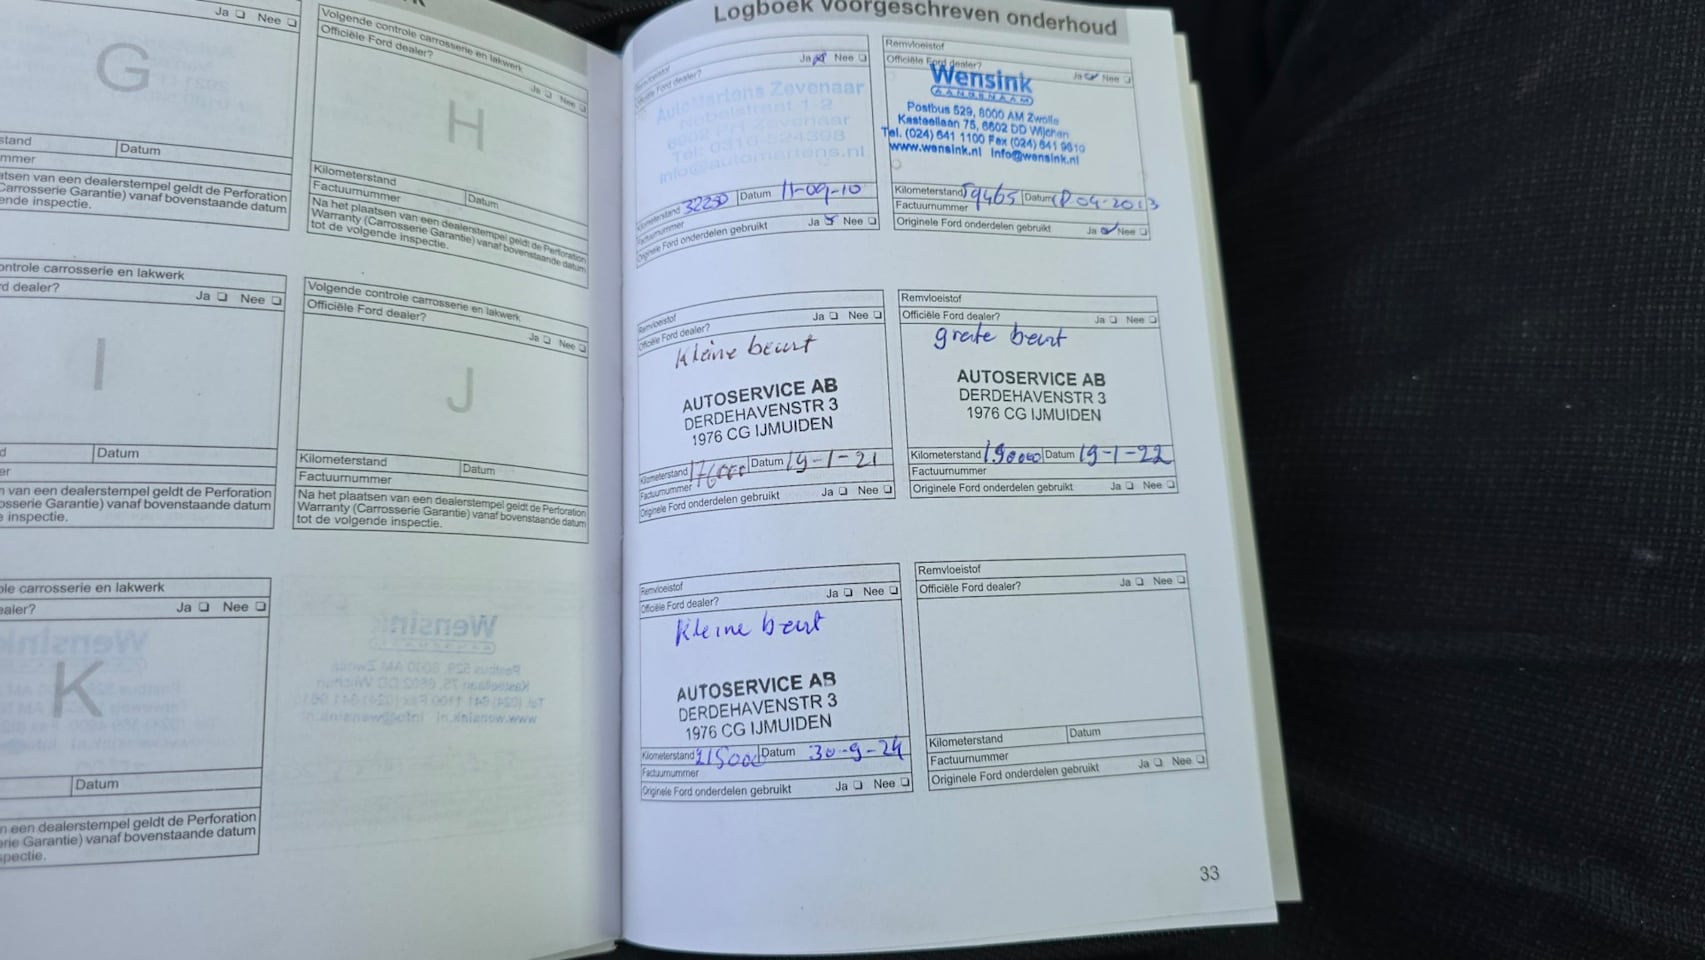 Ja Nee
G
stand Datum
mmer
atsen van een dealerstempel geldt de Perforation
Carrosserie Garantie) vanaf bovenstaande datum
ende inspectie.
Volgende controle carrosserie en lakwerk
Officiële Ford dealer?
Ja Nee
H
Kilometerstand
Factuurnummer Datum
Na het plaatsen van een dealerstempel geldt de Perforation
Warranty (Carrosserie Garantie) vanaf bovenstaande datum
tot de volgende inspectie.
ontrole carrosserie en lakwerk
rd dealer?
Ja Nee
I
d Datum
er
n van een dealerstempel geldt de Perforation
osserie Garantie) vanaf bovenstaande datum
e inspectie.
Volgende controle carrosserie en lakwerk
Officiële Ford dealer?
Ja Nee
J
Kilometerstand Datum
Factuurnummer
Na het plaatsen van een dealerstempel geldt de Perforation
Warranty (Carrosserie Garantie) vanaf bovenstaande datum
tot de volgende inspectie.
ole carrosserie en lakwerk
ealer?
Ja Nee
K
Datum
n een dealerstempel geldt de Perforation
erie Garantie) vanaf bovenstaande datum
spectie.
Logboek voorgeschreven onderhoud
Remvloeistof
Officiële Ford dealer? Ja Nee
AutoMartens Zevenaar
1-2
Zevenaar
Tel: 0316-524398
info@automartens.nl
Kilometerstand 32250 Datum 11-09-10
Factuurnummer
Originele Ford onderdelen gebruikt Ja Nee
Remvloeistof
Officiële Ford dealer? Ja Nee
Wensink
AANGENAAM
Postbus 529, 8000 AM Zwolle
Kasteellaan 75, 6602 DD Wijchen
Tel. (024) 641 1100 Fax (024) 641 9810
www.wensink.nl info@wensink.nl
Kilometerstand 59465 Datum 04-2013
Factuurnummer
Originele Ford onderdelen gebruikt Ja Nee
Remvloeistof
Officiële Ford dealer? Ja Nee
Kleine beurt
AUTOSERVICE AB
DERDEHAVENSTR 3
1976 CG IJMUIDEN
Kilometerstand 176000 Datum 19-1-21
Factuurnummer
Originele Ford onderdelen gebruikt Ja Nee
Remvloeistof
Officiële Ford dealer? Ja Nee
grote beurt
AUTOSERVICE AB
DERDEHAVENSTR 3
1976 CG IJMUIDEN
Kilometerstand 190000 Datum 19-1-22
Factuurnummer
Originele Ford onderdelen gebruikt Ja Nee
Remvloeistof
Officiële Ford dealer? Ja Nee
Kleine beurt
AUTOSERVICE AB
DERDEHAVENSTR 3
1976 CG IJMUIDEN
Kilometerstand 215000 Datum 30-9-24
Factuurnummer
Originele Ford onderdelen gebruikt Ja Nee
Remvloeistof
Officiële Ford dealer? Ja Nee
Kilometerstand Datum
Factuurnummer
Originele Ford onderdelen gebruikt Ja Nee
33